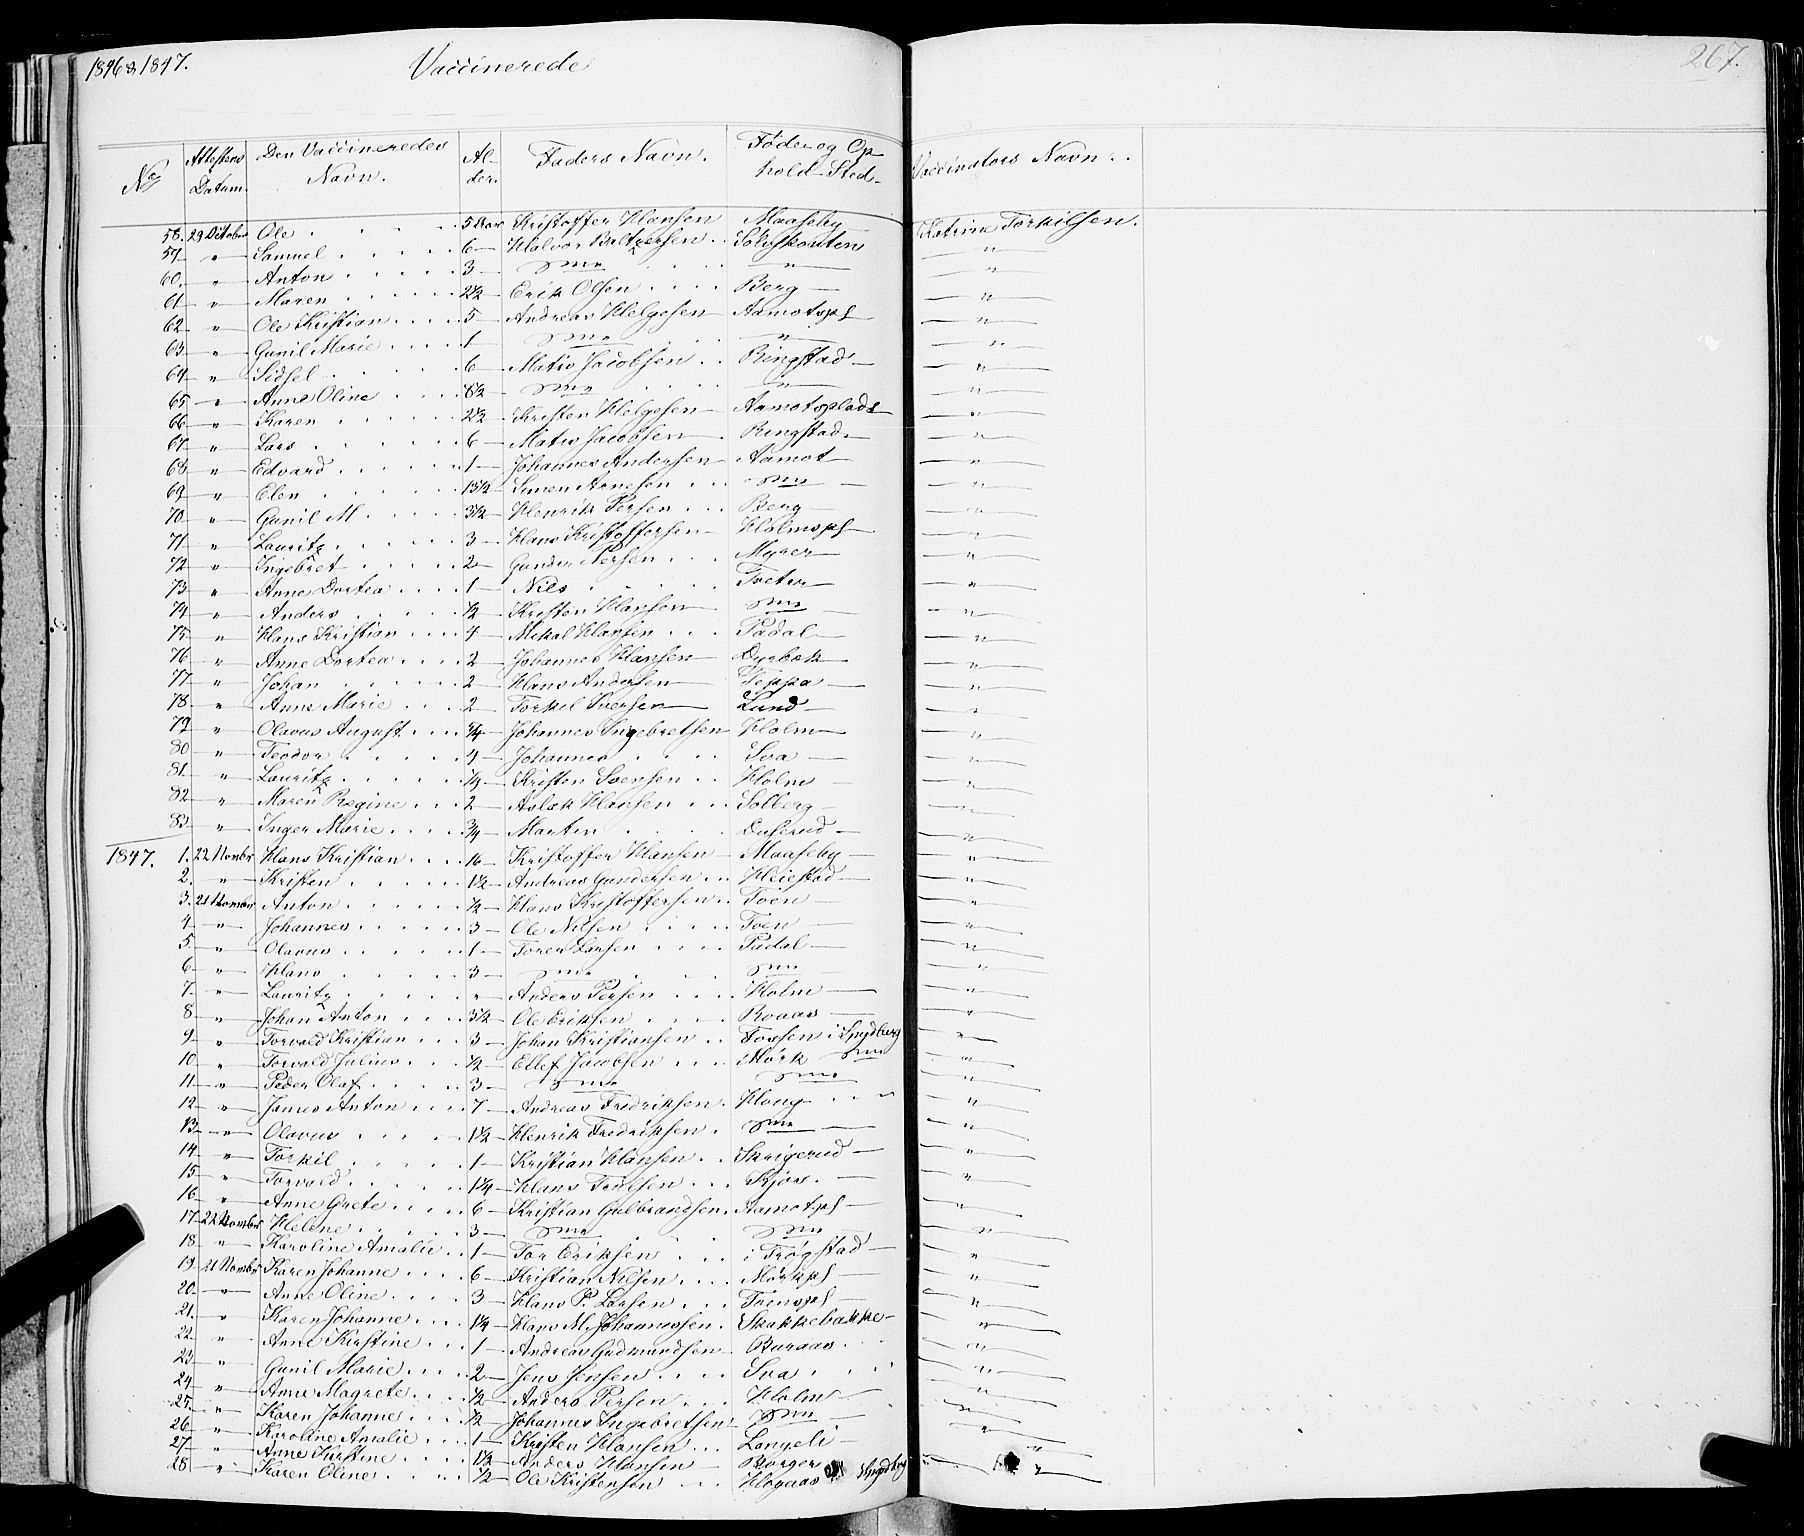 1846 & 1847. Vaccinerede 267.
No Attestens Datum. Den Vaccineredes Navn. Alder. Faders Navn. Føde og Ophold-Sted. Vaccinators Navn.
58. 29 October Ole 5 Aar Kristoffer Hansen Maaseby Katrine Torkilsen.
59 " Samuel 6 Halvor Baltzersen "
60. " Anton 3 Dito " "
61 " Maren 2½ Erik Olsen Berg "
62 " Ole Kristian 5 Andreas Helgesen Aamotspl "
63 " Gunil Marie 1 Dito " "
64 " Sidsel 6 Mativ Jacobsen Ringstad "
65 " Anne Oline 8½ Dito " "
66 " Karen 2½ Kristen Helgesen Aamotsplads "
67 " Lars 6 Mativ Jacobsen Ringstad "
68 " Edvard 1 Johannes Andersen Aamot "
69 " Elen 13½ Simen Arnesen Dito "
70 " Gunil M 3½ Henrik Persen Berg "
71 " Lauritz 3 Hans Kristoffersen Holmspl "
72 " Ingebret 2 Gunder Persen Myrer "
73 " Anne Dortea 1 Nils Tveter "
74 " Anders ½ Kristen Hansen Dito "
75 " Hans Kristian 4 Mikal Hansen Padal "
76 " Anne Dortea 2 Johannes Hansen Dyrbæk "
77 " Johan 2 Hans Andersen Teppa "
78 " Anne Marie 2 Torkil Iversen Lund "
79 " Olavus August ¾ Johannes Ingebretsen Holm "
80 " Teodor 4 Johannes Sva "
81. " Lauritz Kristen Svensen Holm "
82 " Maren Regine 2 Aslak Hansen Solberg "
83 " Inger Marie ¾ Martin Duserud "
1847. 1. 22 Novmbr Hans Kristian 16 Kristoffer Hansen Maaseby "
2. " Kristen 1½ Andreas Gundersen Heiestad "
3. 21 Novmbr Anton ½ Hans Kristoffersen Toen "
4 " Johannes 3 Ole Nilsen Toen "
5 " Olavus 1 Torer Larsen Padal "
6 " Hans 3 Dito Dito "
7. " Lauritz " Anders Persen Holm "
8 " Johan Anton 3½ Ole Eriksen Roaas "
9 " Torvald Kristian 3 Johan Kristiansen Fossen i Spydberg "
10 " Torvald Julius ½ Ellef Jacobsen Mørk Dito "
11 " Peder Olaf 3 Dito Dito "
12 " James Anton 7 Andreas Fredriksen Houg " "
13 " Olavus 1½ Henrik Fredriksen Dito "
14 " Torkil 1 Kristian Hansen Skrigerud "
15 " Torvald 1¼ Hans Trulsen Kjøs. "
16 " Anne Grete 6 Kristian Gulbrandsen Aamotspl "
17 22 Novmbr Helene 3 Dito Dito "
18 " Karoline Amalie 1 Tor Eriksen i Trøgstad "
19 21 Novmbr Karen Johanne 6 Kristian Nilsen Mørkspl "
20. " Anne Oline 3 Hans P. Larsen Toenspl "
21. " Karen Johanne 1¼ Hans M. Johannessen Skakkebakke "
22. " Anne Kirstine 1 Andreas Gudmundsen Buraas "
23 " Gunil Marie 2 Jens Jensen Sva "
24 " Anne Magrete ½ Anders Persen Holm "
25 " Karen Johanne ½ Johannes Ingebretsen Dito "
26 " Karoline Amalie 1 Kristen Hansen Langeli "
27 " Anne Kirstine 1½ Anders Hansen Borger "
28 " Karen Oline ½ Ole Kristensen Høgaas Spydbrg "